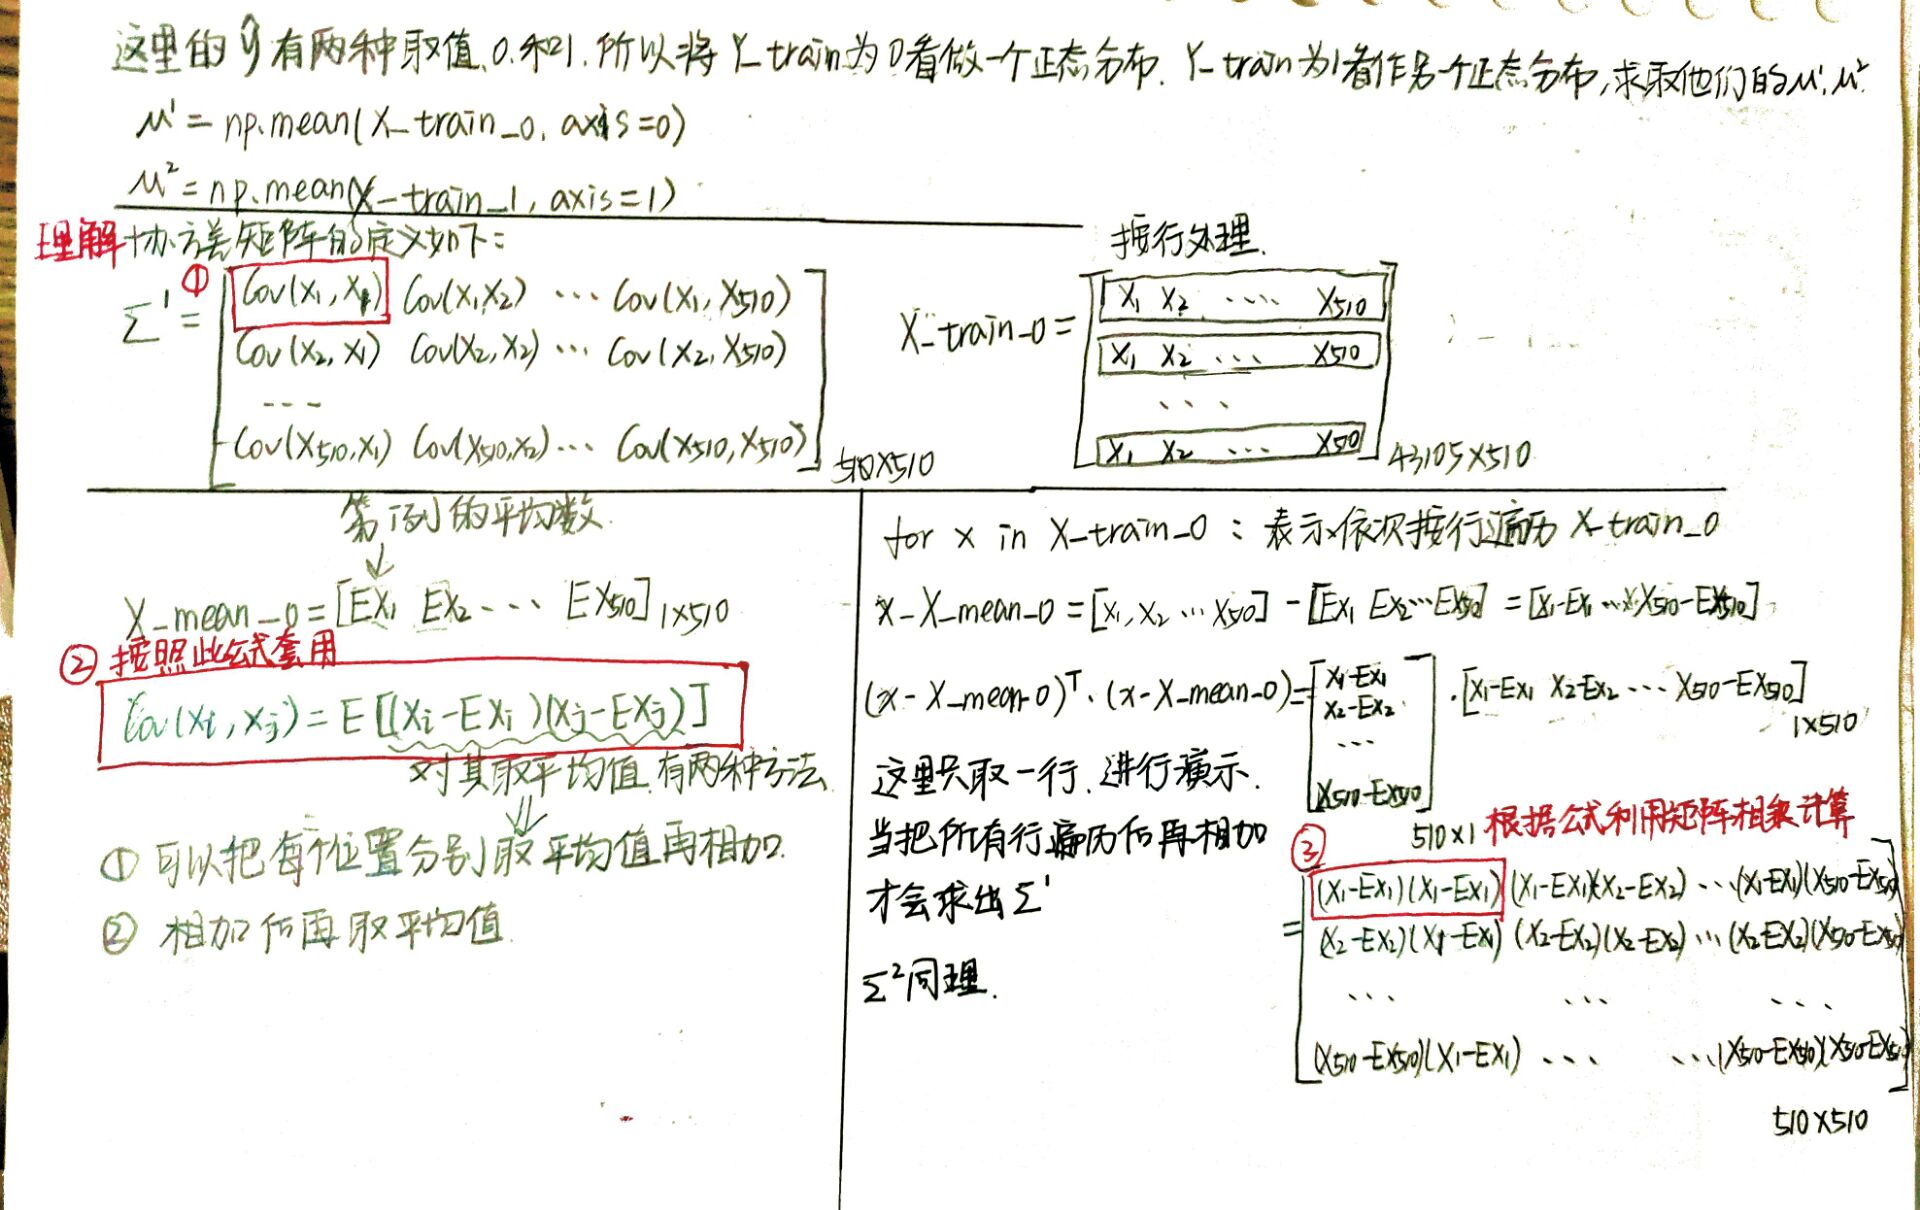 这里的ŷ有两种取值、0.和1.所以将Y_train为0看做一个正态分布. Y_train为1看作另一个正态分布,求取他们的μ¹.μ².
μ¹ = np.mean(X_train_0, axis=0)
μ² = np.mean(X_train_1, axis=1)
理解 协方差矩阵的定义如下:
①
Σ¹ =
Cov(X₁, X₁) Cov(X₁,X₂) ... Cov(X₁, X₅₁₀)
Cov(X₂, X₁) Cov(X₂, X₂) ... Cov(X₂, X₅₁₀)
...
Cov(X₅₁₀,X₁) Cov(X₅₁₀,X₂) ... Cov(X₅₁₀, X₅₁₀)
510×510
按行处理.
X_train_0 =
X₁ X₂ .... X₅₁₀
X₁ X₂ ... X₅₁₀
...
X₁ X₂ ... X₅₁₀
43105×510
第1列的平均数.
X_mean_0 = [EX₁ EX₂ ... EX₅₁₀] 1×510
② 按照此公式套用
Cov(Xi, Xj) = E[(Xi-EXi)(Xj-EXj)]
对其取平均值.有两种方法
① 可以把每个位置分别取平均值再相加.
② 相加后再取平均值
for x in X_train_0 : 表示依次按行遍历 X_train_0
x - X_mean_0 = [X₁, X₂ ... X₅₁₀] - [EX₁ EX₂...EX₅₁₀] = [X₁-EX₁ ... X₅₁₀-EX₅₁₀]
(x - X_mean_0)ᵀ · (x - X_mean_0) =
X₁-EX₁
X₂-EX₂
...
X₅₁₀-EX₅₁₀
510×1
· [X₁-EX₁ X₂-EX₂ ... X₅₁₀-EX₅₁₀]
1×510
这里只取一行.进行演示.
当把所有行遍历后再相加
才会求出Σ¹
Σ²同理.
③ 根据公式利用矩阵相乘计算
=
(X₁-EX₁)(X₁-EX₁) (X₁-EX₁)(X₂-EX₂) ... (X₁-EX₁)(X₅₁₀-EX₅₁₀)
(X₂-EX₂)(X₁-EX₁) (X₂-EX₂)(X₂-EX₂) ... (X₂-EX₂)(X₅₁₀-EX₅₁₀)
... ... ...
(X₅₁₀-EX₅₁₀)(X₁-EX₁) .... ...(X₅₁₀-EX₅₁₀)(X₅₁₀-EX₅₁₀)
510×510